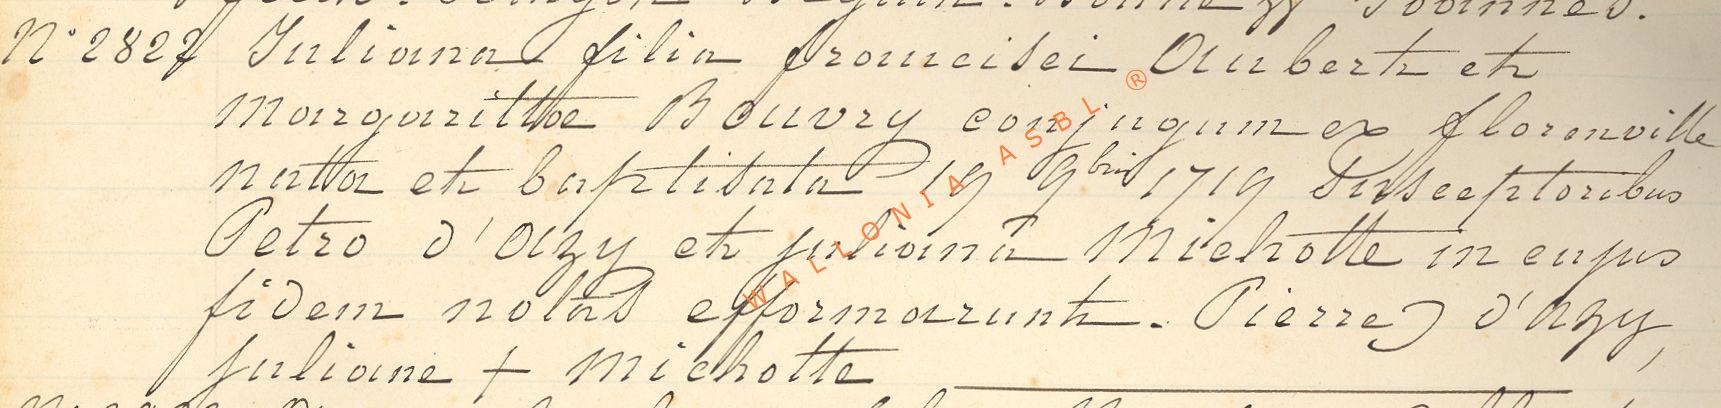 N° 2822 Juliana filia francisci Aubert et
margarittae Bouvry conjugum ex florenville
natta et baptisata 19 9bris 1719 Susceptoribus
Petro d'Azy et julianâ Michotte in cujus
fidem notas efformarunt. Pierre d'Azy,
juliane + Michotte
WALLONIA ASBL ®